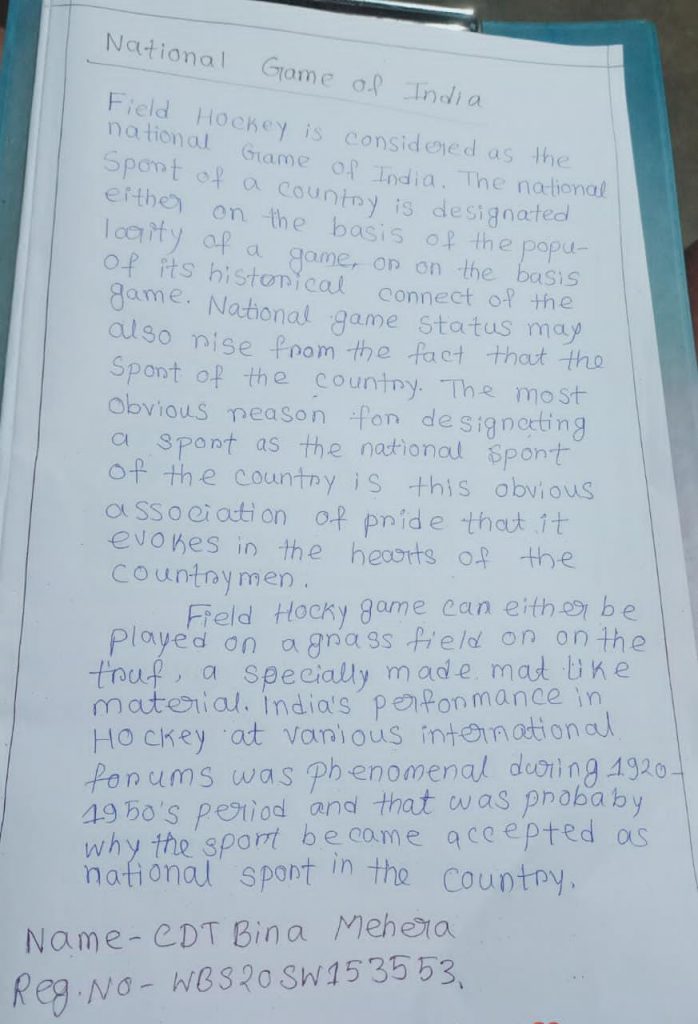 National Game of India
Field Hockey is considered as the
national Game of India. The national
Sport of a country is designated
either on the basis of the popu-
larity of a game, or on the basis
of its historical connect of the
game. National game status may
also rise from the fact that the
Sport of the country. The most
obvious reason for designating
a sport as the national sport
of the country is this obvious
association of pride that it
evokes in the hearts of the
countrymen.
Field Hocky game can either be
played on a grass field or on the
truf, a specially made mat like
material. India's performance in
Hockey at various international
forums was phenomenal during 1920-
1950's period and that was probaby
why the sport became accepted as
national sport in the country.
Name - CDT Bina Mehera
Reg. No - WBS20SW153553.